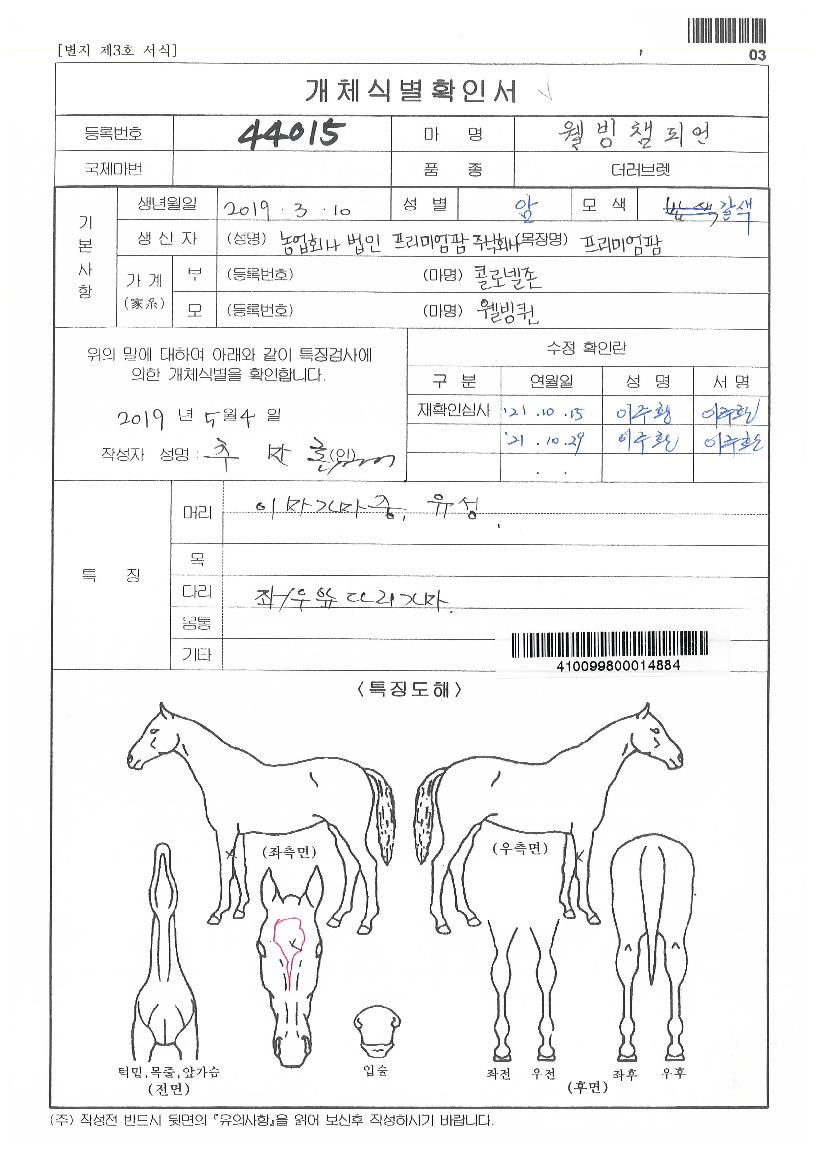 [별지 제3호 서식]
03
개체식별확인서
등록번호 44015 마 명 웰빙챔피언
국제마번 품 종 더러브렛
기본사항
생년월일 2019 . 3 . 10 성 별 암 모 색 밤색 갈색
생 산 자 (성명) 농업회사 법인 프리미엄팜 주식회사 (목장명) 프리미엄팜
가 계 (家系) 부 (등록번호) (마명) 콜로넬존
모 (등록번호) (마명) 웰빙퀸
위의 말에 대하여 아래와 같이 특징검사에
의한 개체식별을 확인합니다.
2019 년 5월 4 일
작성자 성명 : (인)
수정 확인란
구 분 연월일 성 명 서 명
재확인심사 '21 . 10 . 15
'21 . 10 . 29
. .
특 징
머리 이마가마중, 유성
목
다리 좌/우앞다리가마.
몸통
기타
410099800014884
<특징도해>
(좌측면) (우측면)
턱밑,목줄,앞가슴
(전면)
입술
좌전 우전 좌후 우후
(후면)
(주) 작성전 반드시 뒷면의 『유의사항』을 읽어 보신후 작성하시기 바랍니다.